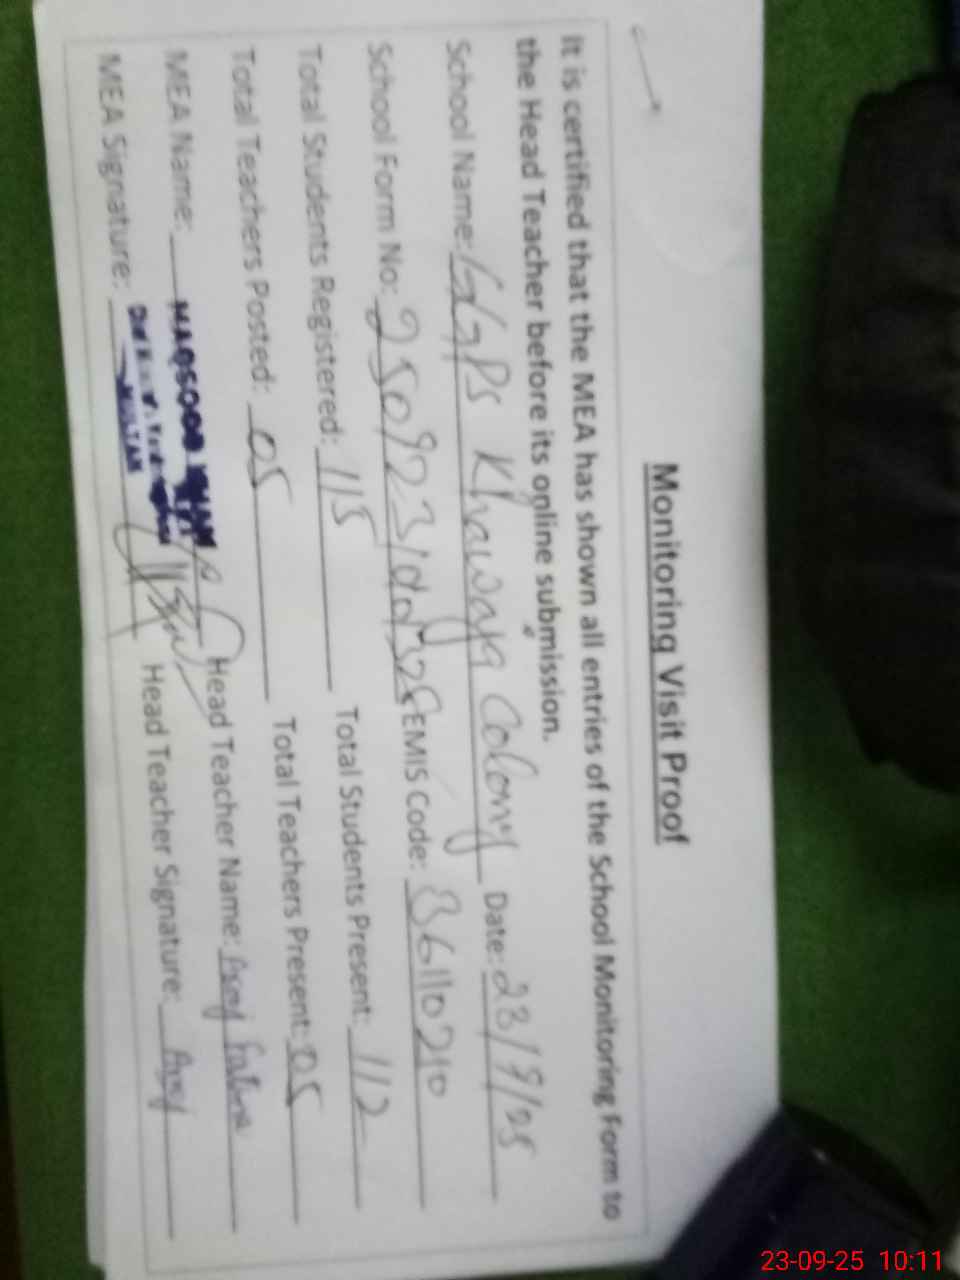 Monitoring Visit Proof
It is certified that the MEA has shown all entries of the School Monitoring Form to
the Head Teacher before its online submission.
School Name: GGPS Khawaja Colony Date: 23/9/25
School Form No: EMIS Code: 36110210
Total Students Registered: 115 Total Students Present: 112
Total Teachers Posted: 05 Total Teachers Present: 05
MEA Name: MAQSOOD KHAN Head Teacher Name:
MEA Signature: MULTAN Head Teacher Signature:
23-09-25 10:11